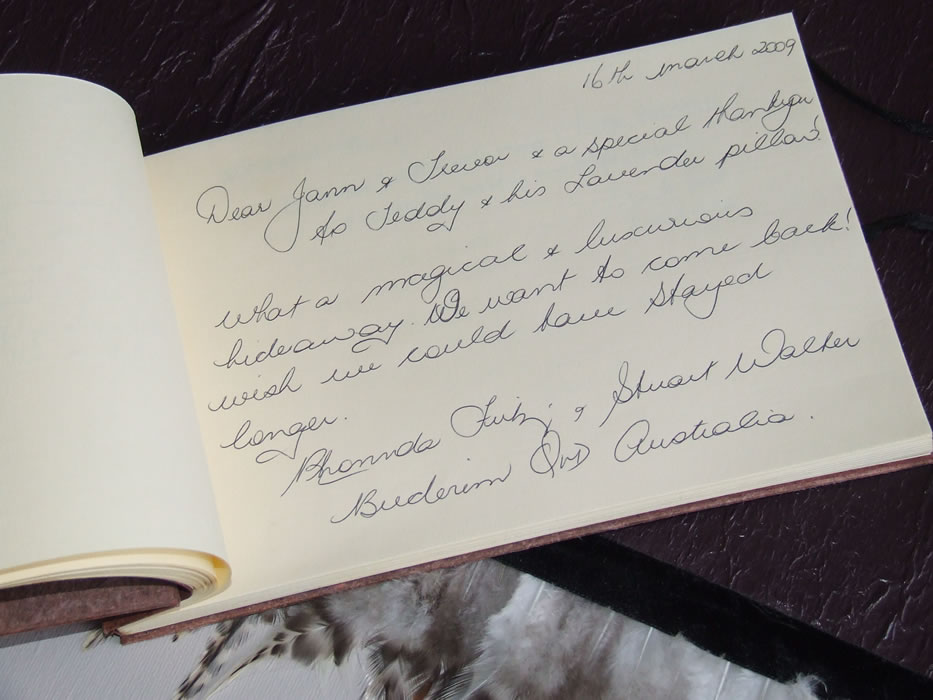 16th march 2009
Dear Jann & Trevor & a special thankyou
to Teddy & his Lavender pillow!
what a magical & luxurious
hideaway. We want to come back!
wish we could have stayed
longer.
Rhonnda & Stuart Walker
Buderim QLD Australia.